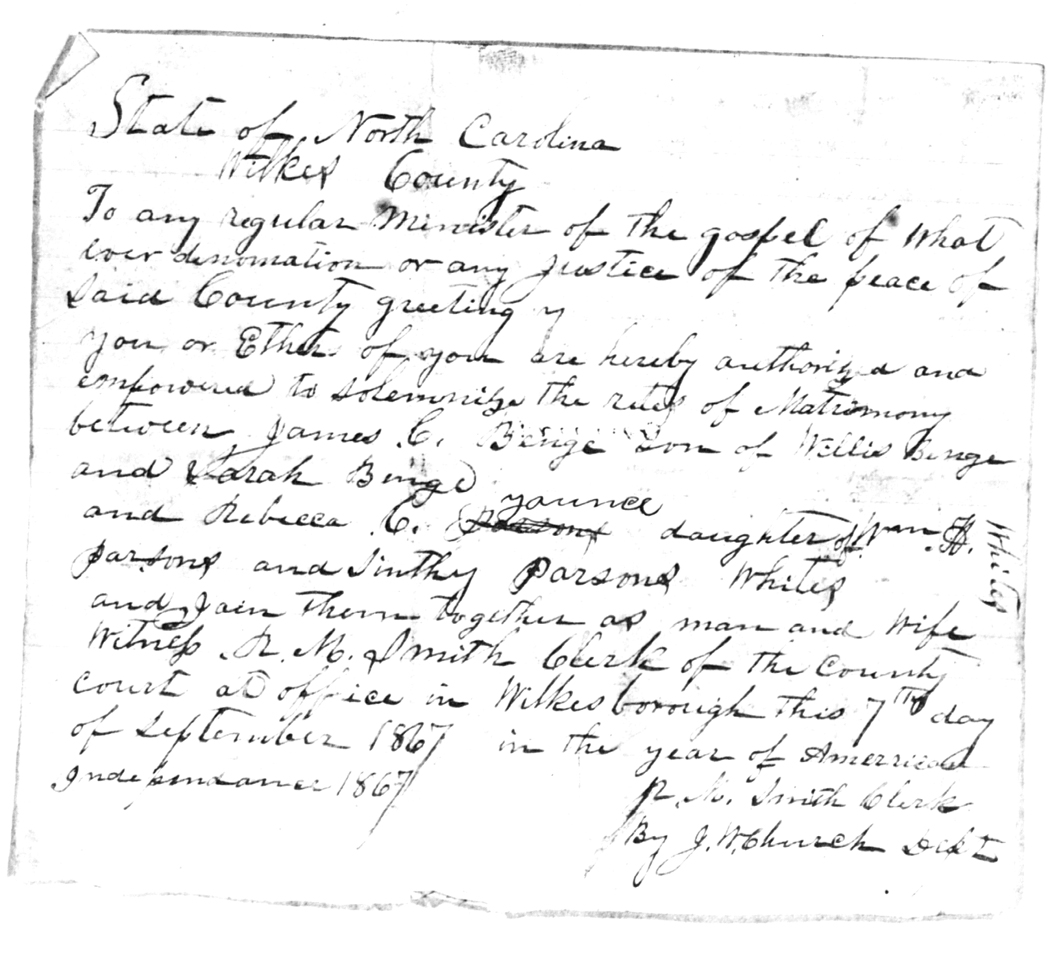 State of North Carolina
Wilkes County
To any regular Minister of the gospel of What
ever denomation or any Justice of the peace of
Said County greeting y
you or Ether of you are hereby authorized and
empowered to solemnize the rites of Matrimony
between James C. Benge Son of Willis Benge
and Sarah Benge
younce
and Rebecca C. Parsons daughter of Wm H.
Parsons and Sinthy Parsons Whites
Whites
and Join them together as man and Wife
Witness R. M. Smith Clerk of the County
court at office in Wilkesborough this 7th day
of September 1867 in the year of American
Independance 1867
R. M. Smith Clerk
By J. W. Church Dept